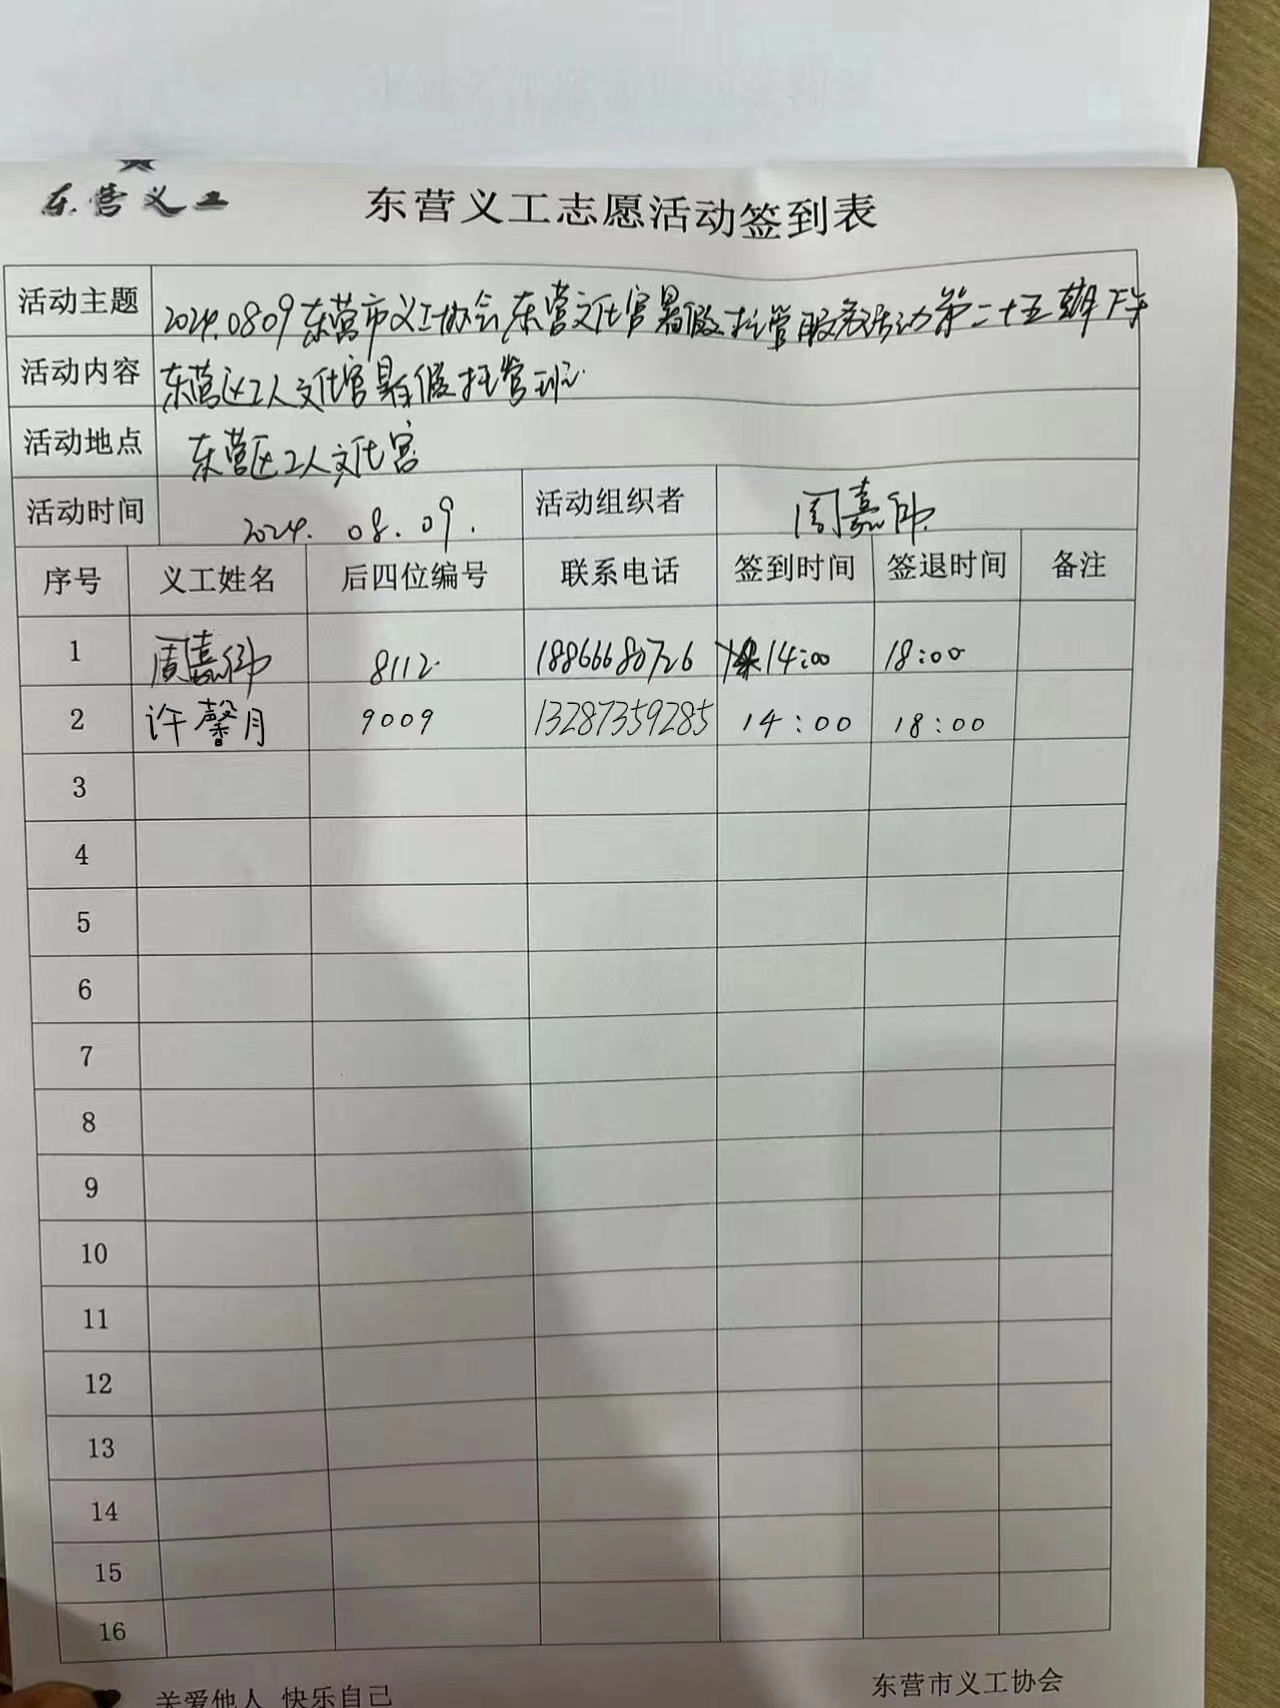 东营义工
东营义工志愿活动签到表
活动主题 2024.0809东营市义工协会东营文化宫暑假托管服务活动第二十五期下午
活动内容 东营区工人文化宫暑假托管班
活动地点 东营区工人文化宫
活动时间 2024.08.09. 活动组织者 周嘉帅
序号 义工姓名 后四位编号 联系电话 签到时间 签退时间 备注
1 周嘉帅 8112 18866680726 14:00 18:00
2 许馨月 9009 13287359285 14:00 18:00
3
4
5
6
7
8
9
10
11
12
13
14
15
16
关爱他人 快乐自己 东营市义工协会